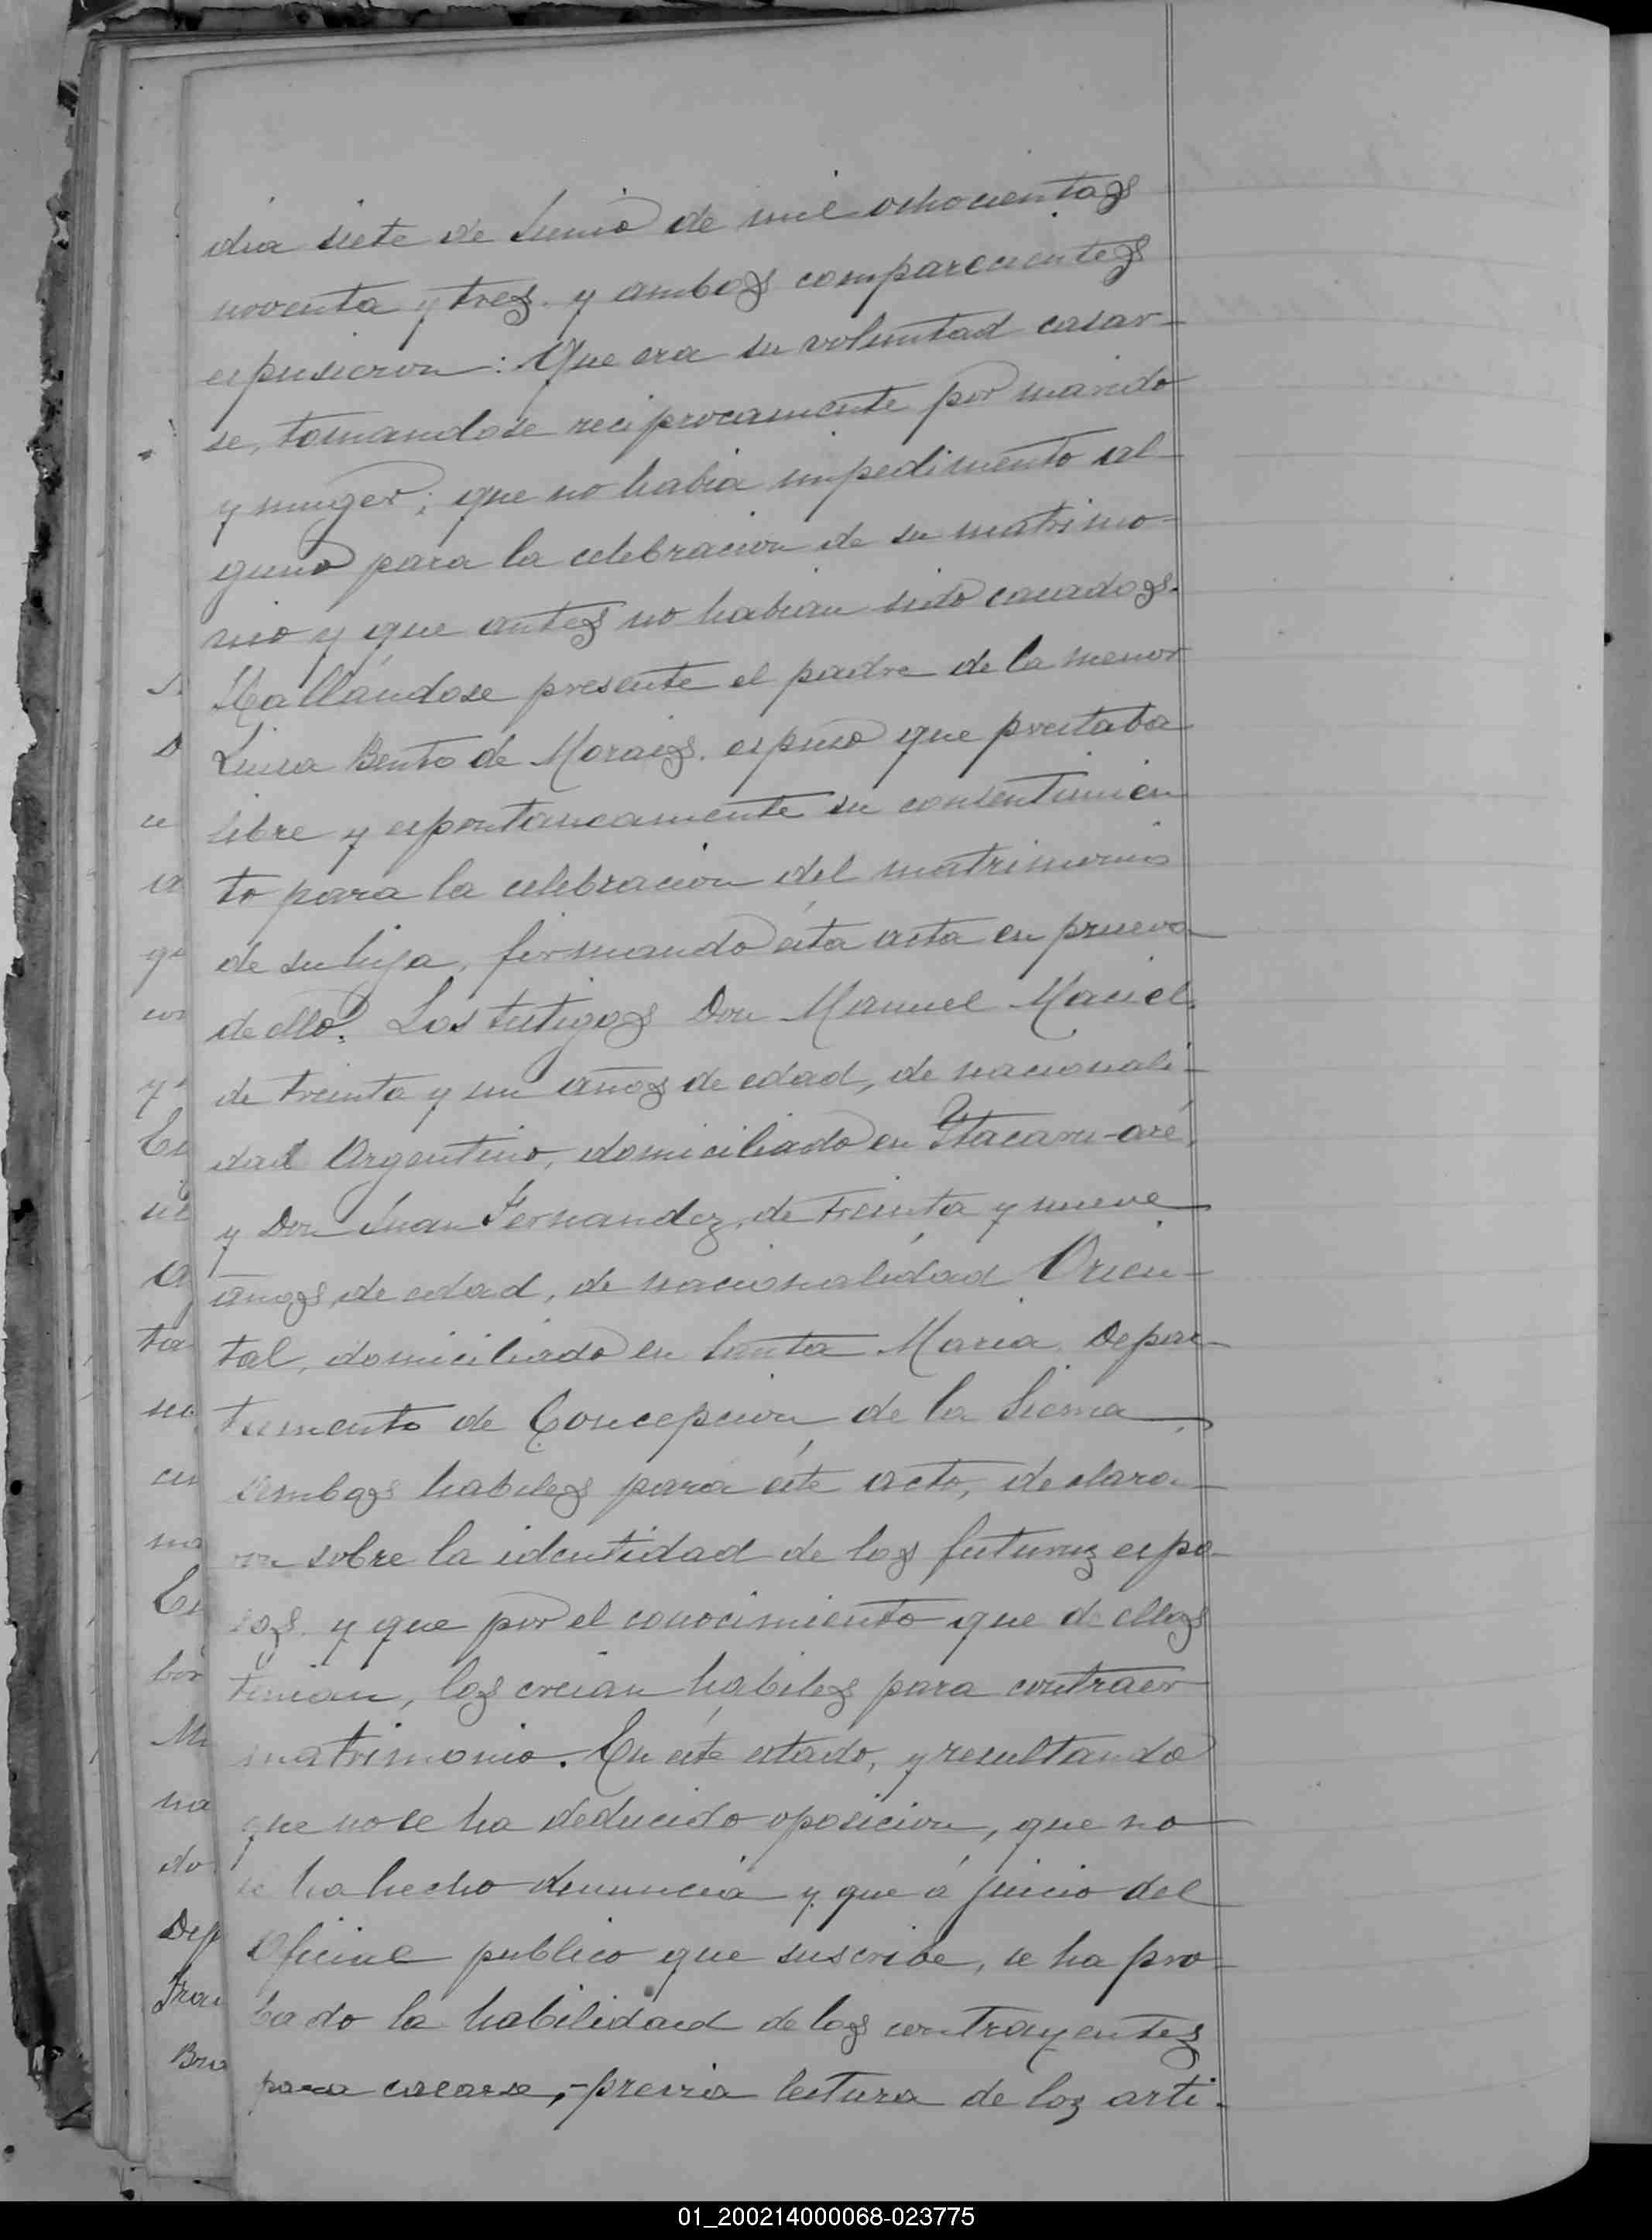 dia siete de Junio de mil ochocientos
noventa y tres. y ambos comparecientes
espusieron: Que era su voluntad casar-
se, tomandose reciprocamente por marido
y muger; que no habia impedimento al-
guno para la celebracion de su matrimo-
nio y que antes no habian sido casados.
Hallándose presente el padre de la menor
Luisa Bento de Moraes. espuso que prestaba
libre y espontaneamente su consentimien
to para la celebracion del matrimonio
de su hija, firmando ésta acta en prueva
de ello. Los testigos Don Manuel Maciel,
de treinta y un años de edad, de nacionali-
dad Argentino, domiciliado en Itacaru-aré,
y Don Juan Fernandez, de treinta y nueve
años, de edad, de nacionalidad Orien-
tal, domiciliado en Santa Maria Depar-
tumento de Concepcion de la Sierra,
ambos habiles para éste acto, declara-
ron sobre la identidad de los futuros espo-
sos. y que por el conocimiento que de ellos
tenian, los creian habiles para contraer
matrimonio. En éste estado, y resultando
que no se ha deducido oposicion, que no
se ha hecho denuncia y que á juicio del
Oficial publico que suscribe, se ha pro-
bado la habilidad de los contrayentes
para casarse,- previa lectura de los arti-
01_200214000068-023775